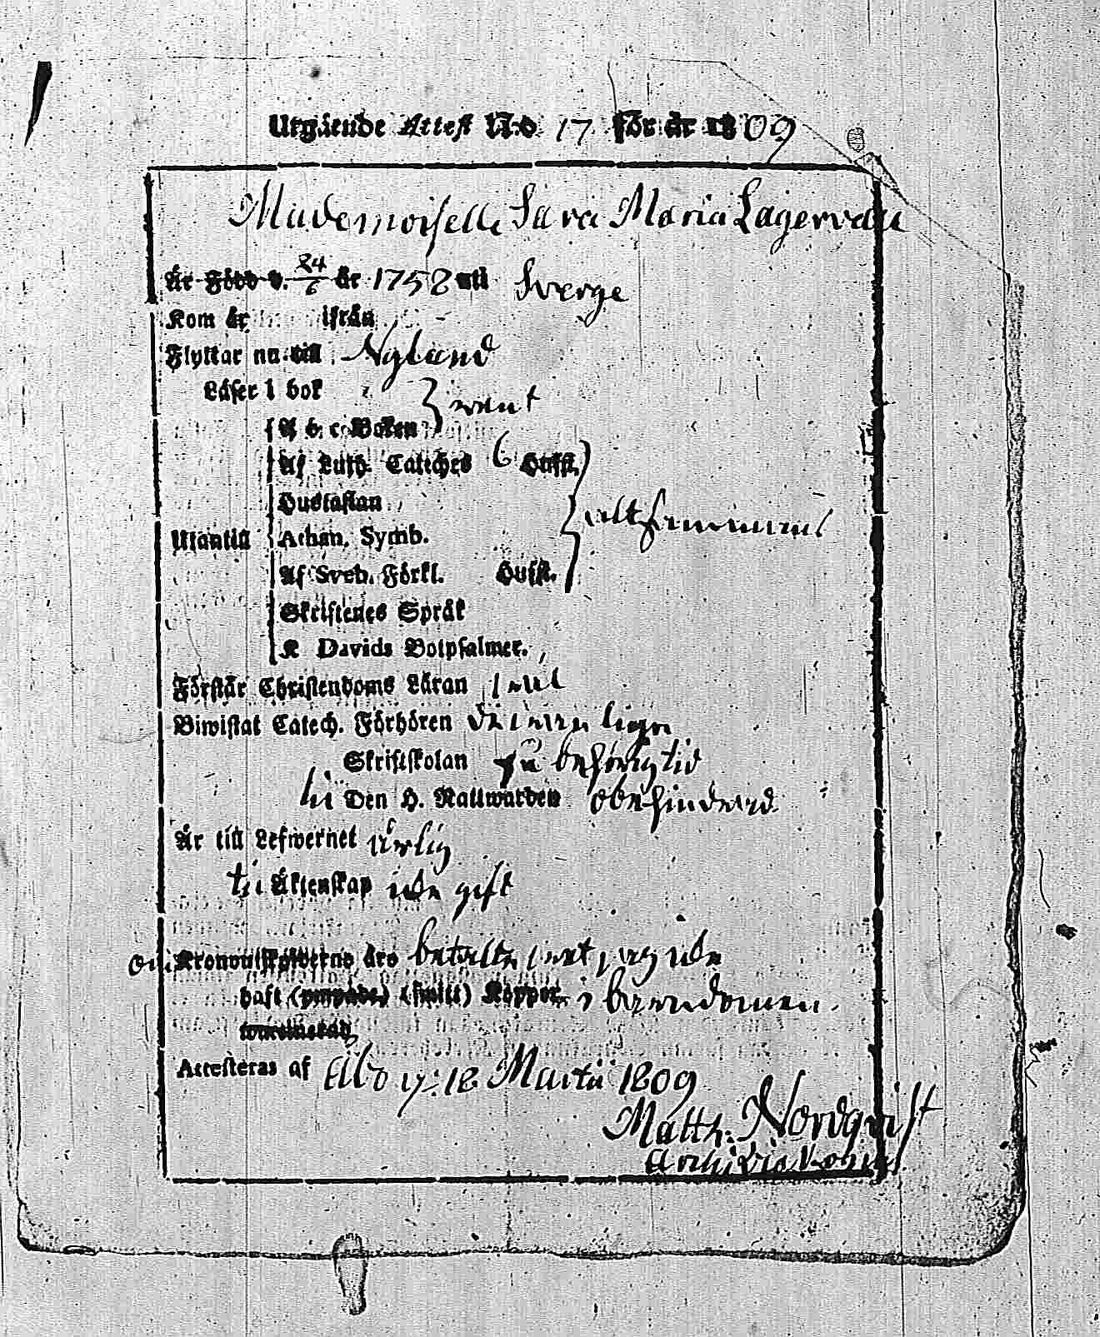 Utgående Attest N:o 17 för år 1809
Mademoiselle Sara Maria Lagervall
Är Född d. 24/6 år 1758 uti Sverge
Kom år ifrån
Flyttar nu till Nyland
Läser i bok
rent
A b c Boken
Af Luth. Catches 6 Hufst.
Hustaflan
Utantill Athan. Symb.
Af Sveb. Förkl. Hufst.
Skriftenes Språk
K Davids Botpsalmer.
Förstår Christendoms Läran
Biwistat Catech. Förhören
Skriftskolan på behörig tid
Den H. Nattwarden obehindrad
Är till Lefwernet ärlig
till Äktenskap icke gift
Kronoutskylderne äro betalte icke
haft Koppor i barndomen.
Attesteras af Åbo d: 18 Martii 1809
Matth. Nordqvist
Archidiaconus